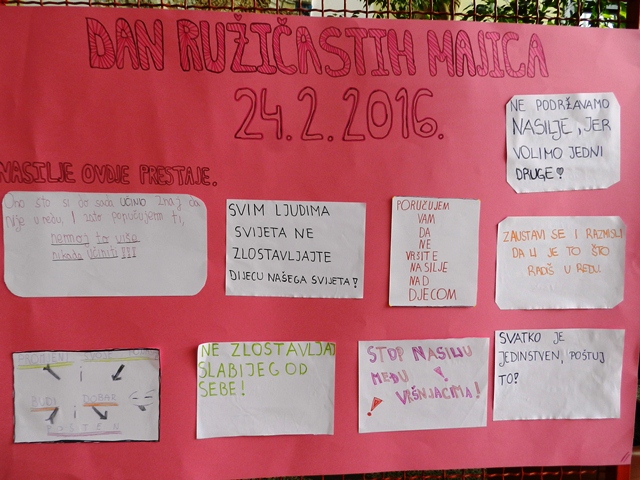 DAN RUŽIČASTIH MAJICA
24.2.2016.
NE PODRŽAVAMO
NASILJE, JER
VOLIMO JEDNI
DRUGE!
NASILJE OVDJE PRESTAJE.
Ono što si do sada UČINIO znaj da
nije u redu i zato poručujem ti,
nemoj to više
nikada učiniti!!!
SVIM LJUDIMA
SVIJETA NE
ZLOSTAVLJAJTE
DIJECU NAŠEGA SVIJETA!
PORUČUJEM
VAM
DA
NE
VRŠITE
NASILJE
NAD
DJECOM
ZAUSTAVI SE I RAZMISLI
DA LI JE TO ŠTO
RADIŠ U REDU.
i
BUDI i DOBAR
POŠTEN
NE ZLOSTAVLJAJ
SLABIJEG OD
SEBE!
STOP NASILJU
MEĐU
VRŠNJACIMA!
SVATKO JE
JEDINSTVEN, POŠTUJ
TO!